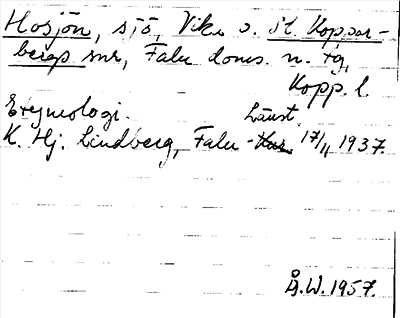 Hosjön, sjö, Vika o. St. Koppar-
bergs snr, Falu doms. n. tg,
Kopp. l.
Etymologi.
Länst.
K. Hj. Lindberg, Falu-Kur. 17/11 1937.
Å.W. 1957.